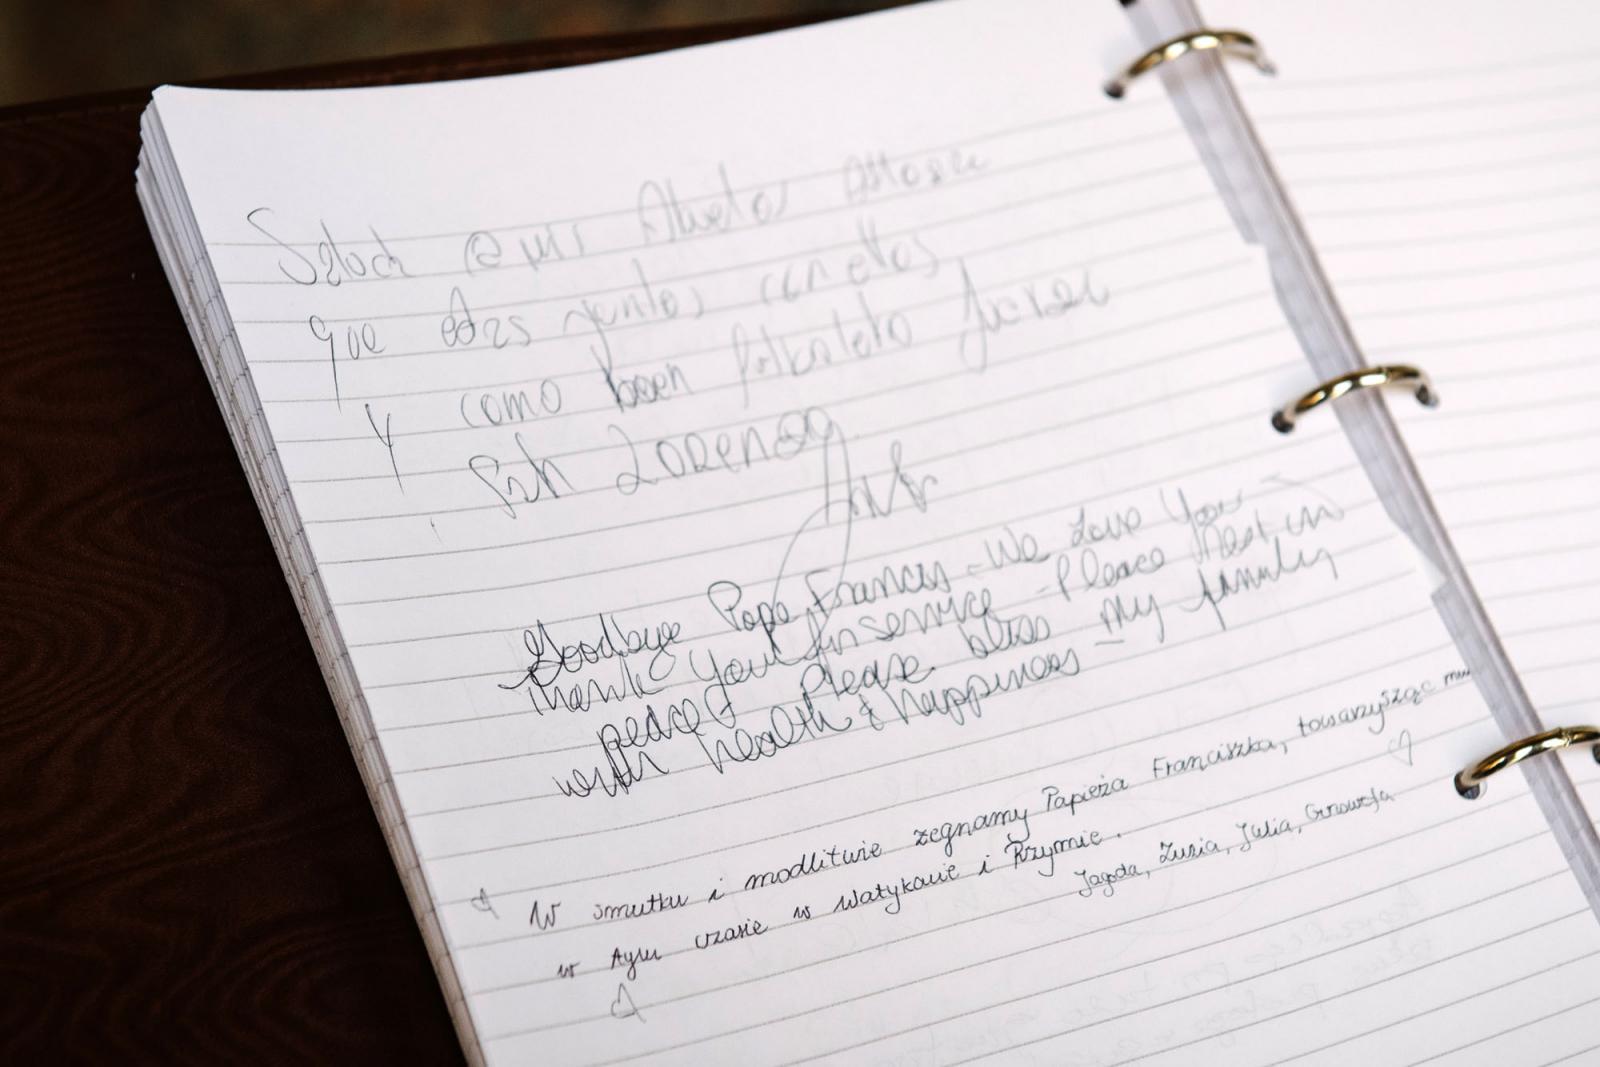 que estas juntos con ellos
Y como buen futbolero
San Lorenzo
Goodbye Pope Francis - We Love You -
Thank you for service - Please Rest in
peace & Please bless my family
with health & happiness -
W smutku i modlitwie żegnamy Papieża Franciszka, towarzysząc mu
w tym czasie w Watykanie i Rzymie.
Jagoda, Zuzia, Julia,